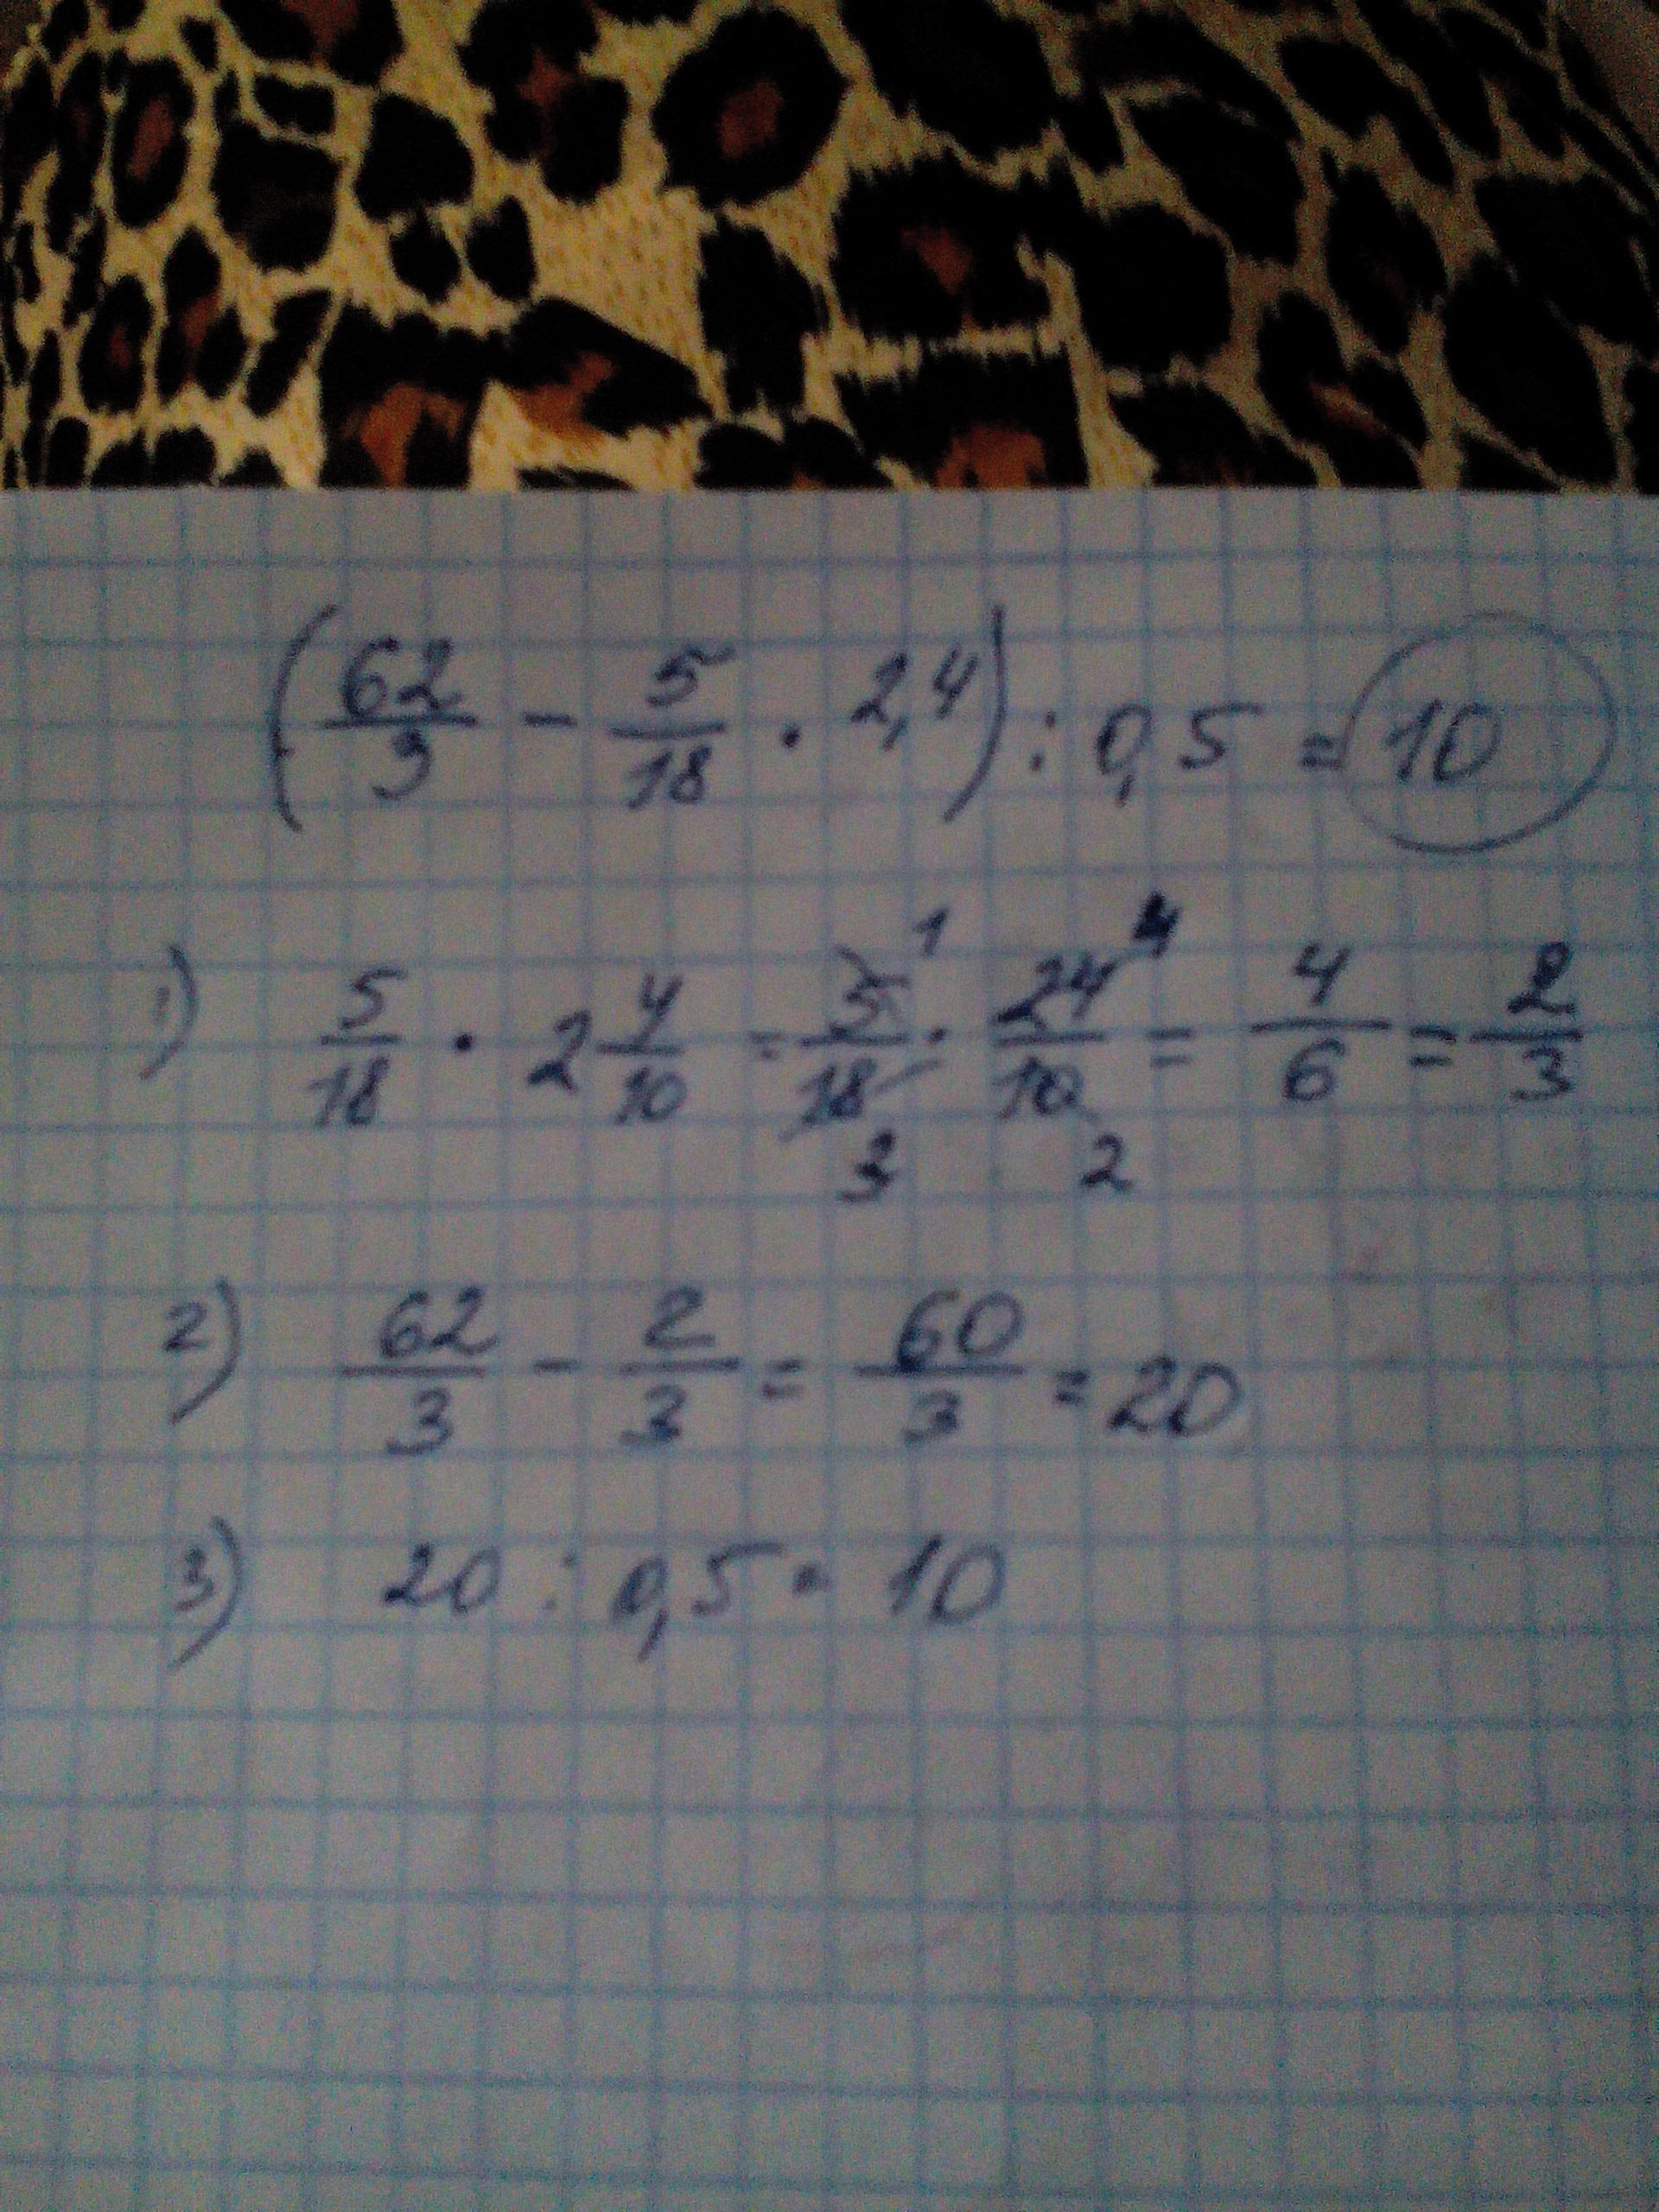 (62/3 - 5/18 · 2,4) : 0,5 = 10
1) 5/18 · 2 4/10 = 5/18 · 24/10 = 4/6 = 2/3
1 4
3 2
2) 62/3 - 2/3 = 60/3 = 20
3) 20 : 0,5 = 10